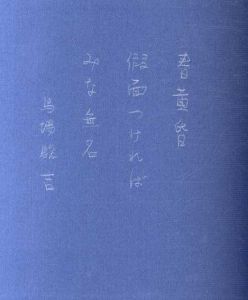 春黄昏
假面つければ
みな無名
馬場駿吉